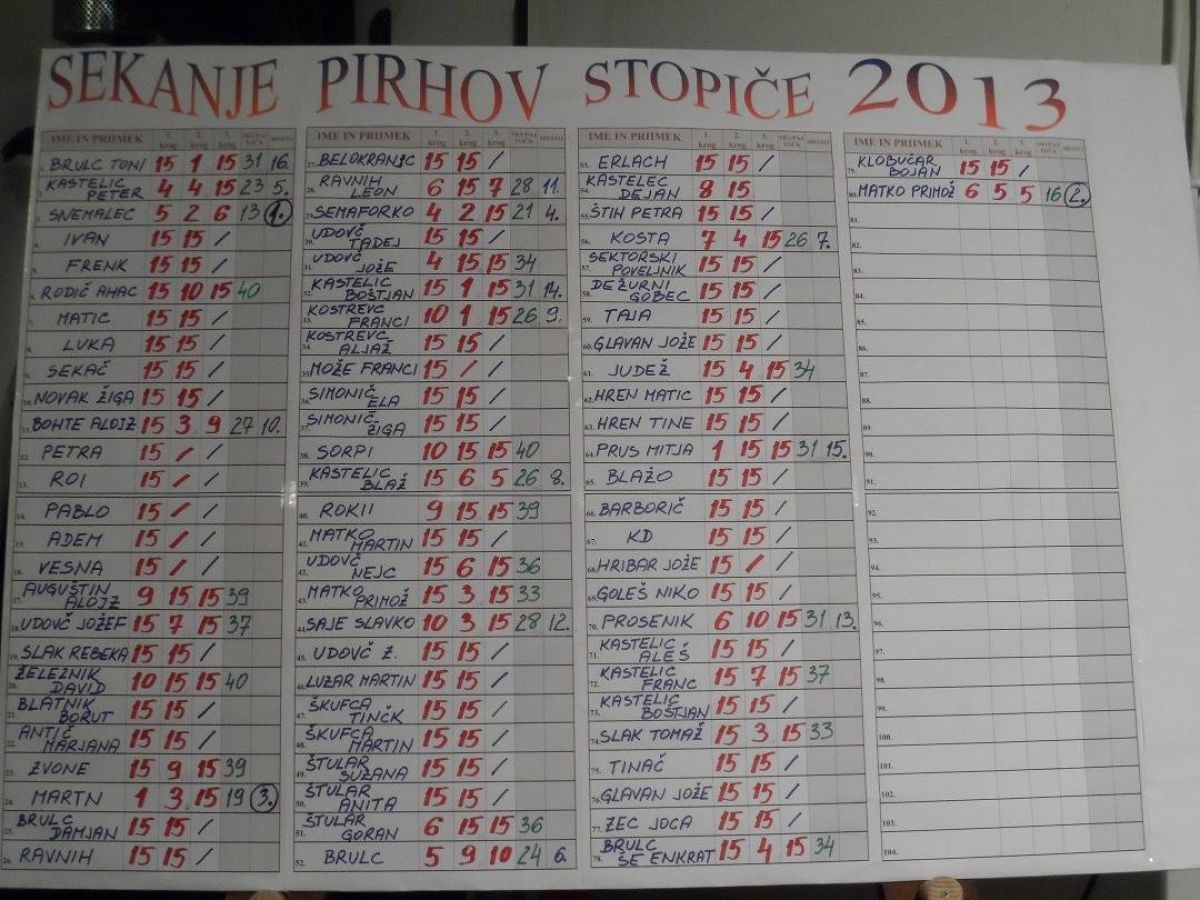 SEKANJE PIRHOV STOPIČE 2013
IME IN PRIIMEK 1. krog 2. krog 3. krog SKUPAJ TOČK MESTO
1. BRULC TONI 15 1 15 31 16.
2. KASTELIC PETER 4 4 15 23 5.
3. SNEMALEC 5 2 6 13 1.
4. IVAN 15 15 /
5. FRENK 15 15 /
6. RODIČ AHAC 15 10 15 40
7. MATIC 15 15 /
8. LUKA 15 15 /
9. SEKAČ 15 15 /
10. NOVAK ŽIGA 15 15 /
11. BOHTE ALOJZ 15 3 9 27 10.
12. PETRA 15 / /
13. ROI 15 / /
14. PABLO 15 / /
15. ADEM 15 / /
16. VESNA 15 / /
17. AUGUŠTIN ALOJZ 9 15 15 39
18. UDOVČ JOŽEF 15 7 15 37
19. SLAK REBEKA 15 15 /
20. ŽELEZNIK DAVID 10 15 15 40
21. BLATNIK BORUT 15 15 /
22. ANTIČ MARJANA 15 15 /
23. ZVONE 15 9 15 39
24. MARTN 1 3 15 19 3.
25. BRULC DAMJAN 15 15 /
26. RAVNIH 15 15 /
IME IN PRIIMEK 1. krog 2. krog 3. krog SKUPAJ TOČK MESTO
27. BELOKRANJC 15 15 /
28. RAVNIH LEON 6 15 7 28 11.
29. SEMAFORKO 4 2 15 21 4.
30. UDOVČ TADEJ 15 15 /
31. UDOVČ JOŽE 4 15 15 34
32. KASTELIC BOŠTJAN 15 1 15 31 14.
33. KOSTREVC FRANCI 10 1 15 26 9.
34. KOSTREVC ALJAŽ 15 15 /
35. MOŽE FRANCI 15 / /
36. SIMONIČ ELA 15 15 /
37. SIMONIČ ŽIGA 15 15 /
38. SORPI 10 15 15 40
39. KASTELIC BLAŽ 15 6 5 26 8.
40. ROKII 9 15 15 39
41. MATKO MARTIN 15 15 /
42. UDOVČ NEJC 15 6 15 36
43. MATKO PRIMOŽ 15 3 15 33
44. SAJE SLAVKO 10 3 15 28 12.
45. UDOVČ Ž. 15 15 /
46. LUZAR MARTIN 15 15 /
47. ŠKUFCA TINČK 15 15 /
48. ŠKUFCA MARTIN 15 15 /
49. ŠTULAR SUZANA 15 15 /
50. ŠTULAR ANITA 15 15 /
51. ŠTULAR GORAN 6 15 15 36
52. BRULC 5 9 10 24 6.
IME IN PRIIMEK 1. krog 2. krog 3. krog SKUPAJ TOČK MESTO
53. ERLACH 15 15 /
54. KASTELEC DEJAN 8 15
55. ŠTIH PETRA 15 15 /
56. KOSTA 7 4 15 26 7.
57. SEKTORSKI POVELJNIK 15 15 /
58. DEŽURNI GOBEC 15 15 /
59. TAJA 15 15 /
60. GLAVAN JOŽE 15 15 /
61. JUDEŽ 15 4 15 34
62. HREN MATIC 15 15 /
63. HREN TINE 15 15 /
64. PRUS MITJA 1 15 15 31 15.
65. BLAŽO 15 15 /
66. BARBORIČ 15 15 /
67. KD 15 15 /
68. HRIBAR JOŽE 15 / /
69. GOLEŠ NIKO 15 15 /
70. PROSENIK 6 10 15 31 13.
71. KASTELIC ALEŠ 15 15 /
72. KASTELIC FRANC 15 7 15 37
73. KASTELIC BOŠTJAN 15 15 /
74. SLAK TOMAŽ 15 3 15 33
75. TINAČ 15 15 /
76. GLAVAN JOŽE 15 15 /
77. ZEC JOCA 15 15 /
78. BRULC ŠE ENKRAT 15 4 15 34
IME IN PRIIMEK 1. krog 2. krog 3. krog SKUPAJ TOČK MESTO
79. KLOBUČAR BOJAN 15 15 /
80. MATKO PRIMOŽ 6 5 5 16 2.
81.
82.
83.
84.
85.
86.
87.
88.
89.
90.
91.
92.
93.
94.
95.
96.
97.
98.
99.
100.
101.
102.
103.
104.